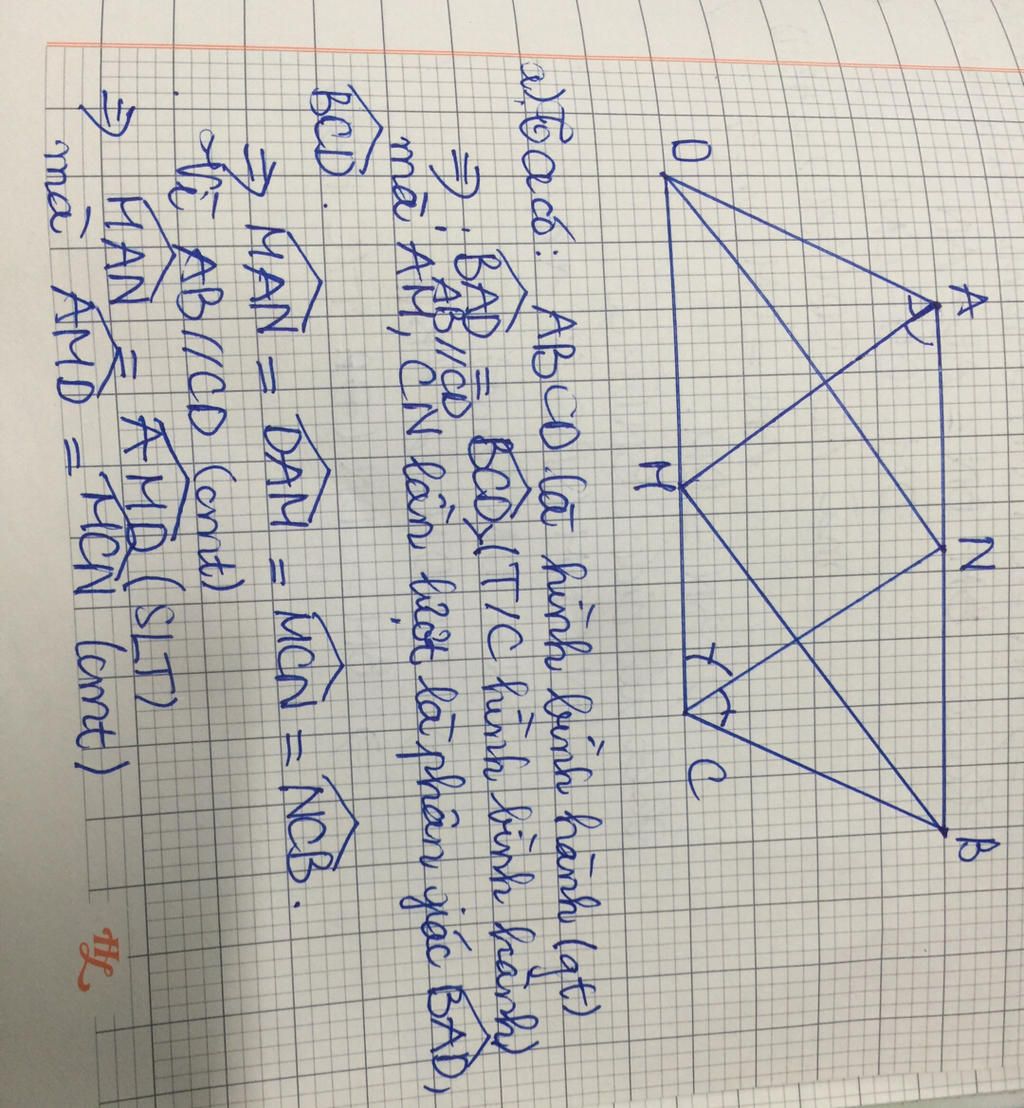 A N B
D M C
a) Ta có: ABCD là hình bình hành (gt)
⇒ : \widehat{BAD} = \widehat{BCD}, (T/C hình bình hành)
AB//CD
mà AM, CN lần lượt là phân giác \widehat{BAD},
\widehat{BCD}.
⇒ \widehat{MAN} = \widehat{DAM} = \widehat{MCN} = \widehat{NCB}.
Vì AB//CD (cmt)
⇒ \widehat{MAN} = \widehat{AMD} (SLT)
mà \widehat{AMD} = \widehat{MCN} (cmt)